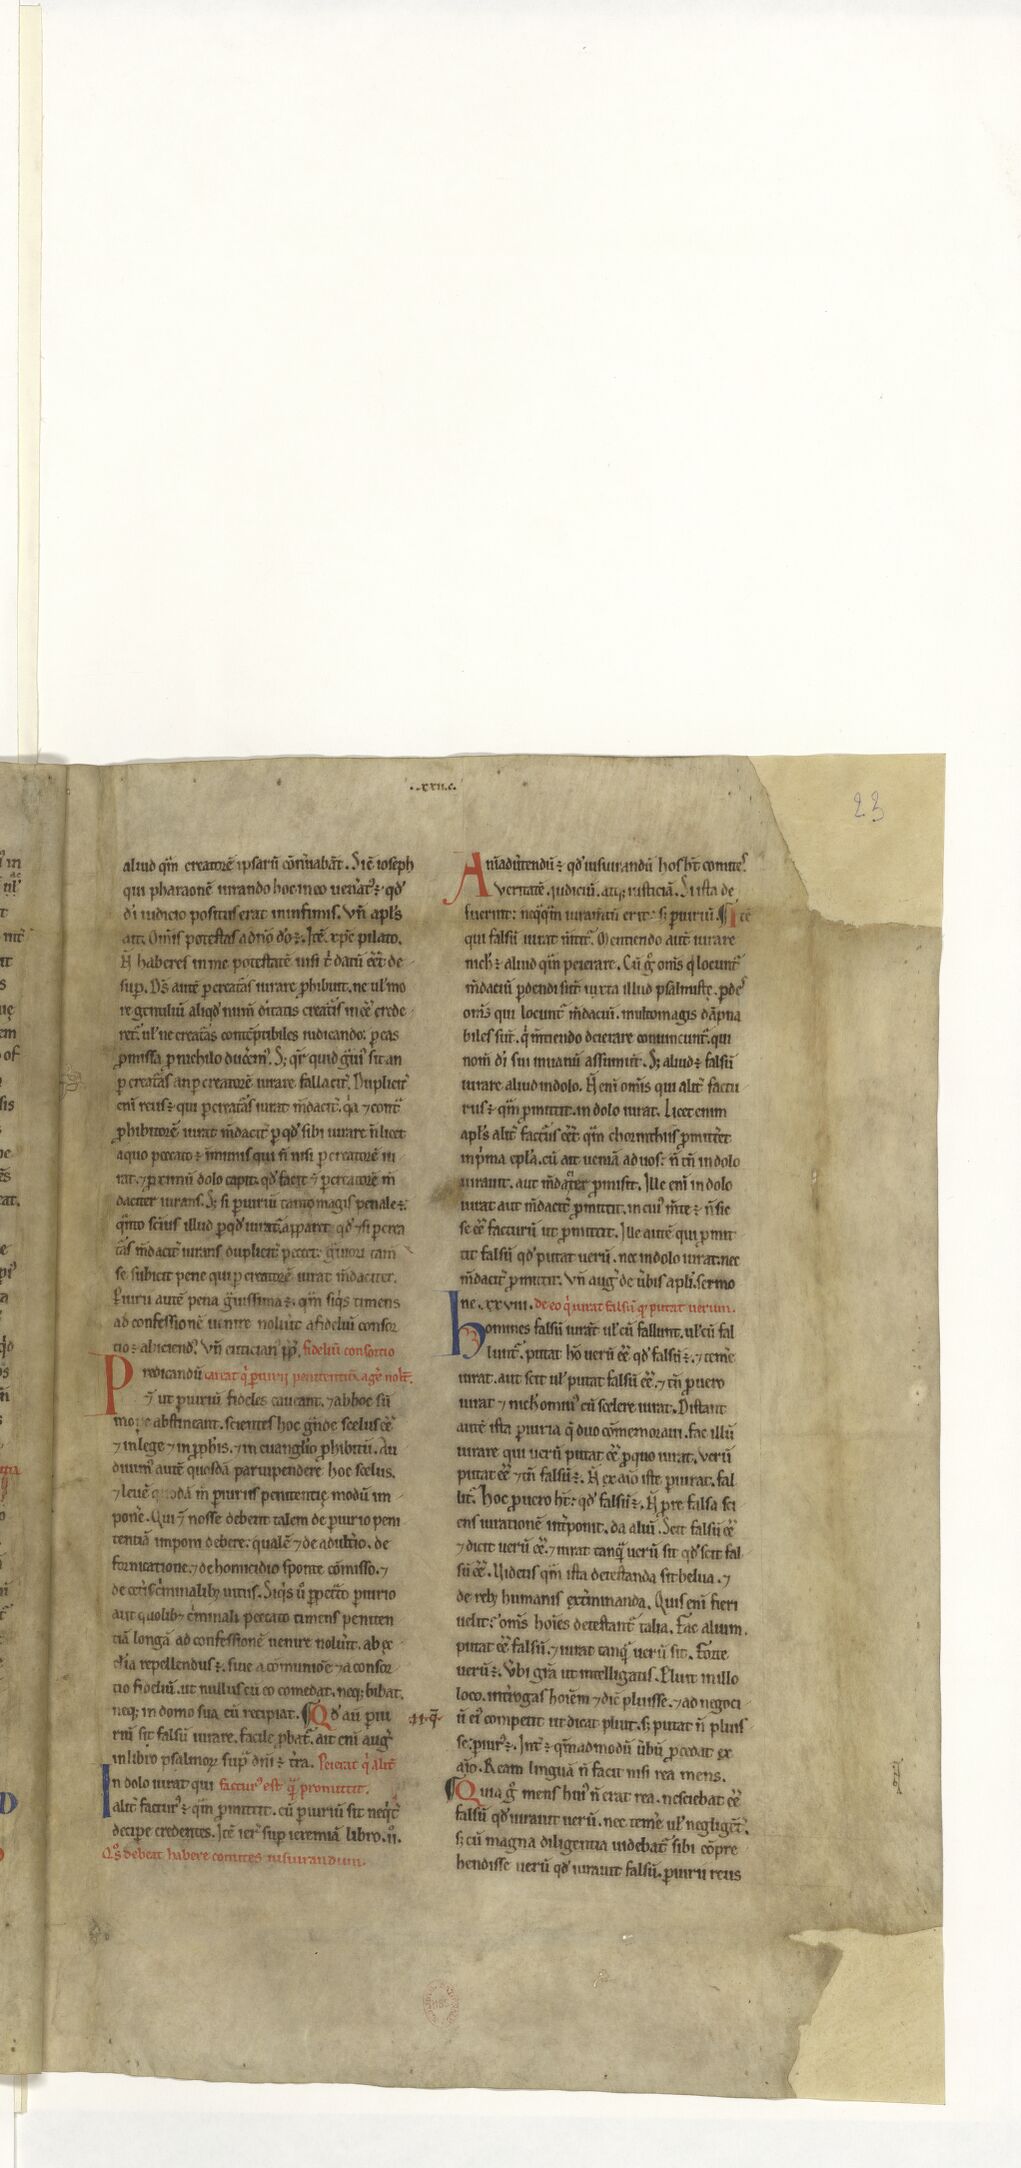 .xxii.c.
23
aliud qm̄ creatorē ipsarū cōn̄uabāt. Sic̄ ioseph
qui pharaonē iurando hoc in eo uen̄at᷒ ē· qd̓
di iudicio positus erat in infimis. Vn̄ apl̄s
ait. Om̄is potestas a dn̄o do ē. Itē xp̄c pilato.
Ñ haberes in me potestatē nisi t̄ datū eēt de
sup. Ds̄ autē p creatas̄ iurare phibuit. ne ul̓ mo
re gentiliū aliqd̓ num̄ diītatis creatis̄ in eē crede
ret̄. ul̓ ne creatas̄ contēptibiles iudicando: p eas
pmissa p nichilo ducēm᷒. S; qr̄ quid ḡui᷒ sit an
p creatas̄ an p creatorē iurare fallacit̄. Duplicit̄
eni reus ē qui p creatas̄ iurat m̄dacit̄. qa ⁊ cont̄
phibitorē iurat m̄dacit̄ p qd̓ sibi iurare n̄ licet
a quo peccato ē inmunis qui n̄ nisi p creatorē iu
rat. ⁊ pximū dolo capit. qd̓ facit ⁊ p creatorē m̄
daciter iurans. S; si piuriū tanto magis penale ē·
qnto sc̄ius illud p qd̓ iurat̄. apparet qd̓ ⁊ si p crea
tas̄ m̄dacit̄ iurans duplicit̄ peccet: ḡuiori tam̄
se subicit pene qui p creatorē iurat m̄daciter.
Piurii autē pena ḡuissima ē. qm̄ siqs timens
ad confessionē uenire noluit a fideliū consor
tio ē abiciend᷒. Vn̄ euticianus pp̄. fideliū consortio
Predicandū careat q piurii penitentiā agē nolit̄.
ē ut piuriū fideles caueant. ⁊ ab hoc sū
mope abstineant. scientes hoc ḡnde scelus eē
⁊ in lege ⁊ in pphis. ⁊ in euanglio phibitū. Au
diuim᷒ autē quosdā paruipendere hoc scelus.
⁊ leuē quodā m̄ piuriis penitentię modū im
ponē. Qui ⁊ nosse debent talem de piurio peni
tentiā imponi debere: qualē ⁊ de adultio. de
fornicatione. ⁊ de homicidio sponte cōmisso. ⁊
de cet̄is c̄minalib; uitiis. Siqs u̓ ppetto piurio
aut quolib; c̄minali peccato timens peniten
tiā longā ad confessionē uenire nolūit. ab ęc
cl̄ia repellendus ē. siue a cōmunioē ⁊ a consor
tio fideliū. ut nullus cū eo comedat. neq; bibat.
neq; in domo sua eū recipiat. ¶Qd̓ aū piu
riū sit falsū iurare. facile pbat̄. ait eni aug᷒
in libro psalmoꝝ sup̄ dn̄i ē tr̄a. Peierat q alit̄
In dolo iurat qui factur᷒ est q̄ promittit.
alit̄ factur᷒ ē qm̄ pmittit. cū piuriū sit neqt̄
decipe credentes. Itē ier᷒ sup ieremiā libro .ii.
Q᷒s debeat habere comites iusiurandum.
Anīadutendū ē qd̓ iusiurandū hos h̄t comites
Veritatē. iudiciū. atq; iusticiā. Si ista de
fuerint: neqqm̄ iuram̄tū erit: s; piuriū. ¶Itē
qui falsū iurat m̄tit̄. Mentiendo autē iurare
nich̄ ē aliud qm̄ peierare. Cū ḡ om̄s q locunt̄
m̄daciū pdendi sint iuxta illud psalmistę. pdes
om̄s qui locunt̄ m̄daciū. multomagis dāpna
biles sūt. q m̄tiendo deierare conuincunt̄. qui
nom̄ di sui inuanū assumūt. S; aliud ē falsū
iurare aliud in dolo. Ñ eni om̄is qui alit̄ factu
rus ē qm̄ pmittit. in dolo iurat. Licet enim
apl̄s alit̄ fact᷒us eēt qm̄ chorinthiis pmittēt
in pma epla. cū ait ueniā ad uos: n̄ tn̄ in dolo
iurauit. aut m̄dacit̄ pmisit. Ille eni in dolo
iurat aut m̄dacit̄ pmittit. in cui᷒ m̄te ē n̄ sic
se eē facturū ut pmittit. Ille autē qui pmit
tit falsū qd̓ putat uerū. nec in dolo iurat. nec
m̄dacit̄ pmittit. Vn̄ aug᷒ de ūbis apli. sermo
ne .xxviii. de eo q iurat falsū q putat uerum.
homines falsū iurāt ul̓ cū fallunt. ul̓ cū fal
lunt̄. putat hō uerū eē qd̓ falsū ē. ⁊ temē
iurat. aut scit ul̓ putat falsū eē. ⁊ tn̄ p uero
iurat ⁊ nichomin᷒ cū scelere iurat. Distant
autē ista piuria q duo cōmemoraui. Fac illū
iurare qui uerū putat eē p quo iurat. Verū
putat eē ⁊ tn̄ falsū ē. Ñ ex aīo iste piurat. fal
lit̄. hoc p uero h̄t: qd̓ falsū ē. Ñ p re falsa sci
ens iurationē int̄ponit. da aliū. Scit falsū eē
⁊ dicit uerū eē. ⁊ iurat tanq̄ uerū sit qd̓ scit fal
sū eē. Videtis qm̄ ista detestanda sit belua. ⁊
de reb; humanis ext̄minanda. Quis eni fieri
uelit: om̄s hoīes detestant̄ talia. Fac alium.
putat eē falsū. ⁊ iurat tanq̄ uerū sit. Forte
uerū ē. Vbi grā ut intelligatis. Pluit in illo
loco. int̄rogas hoīem ⁊ dic̄ pluisse. ⁊ ad negoci
ū ei᷒ competit ut dicat pluit. s; putat n̄ pluis
se. piur᷒ ē. Int̄ ē qm̄admodū ūbū pcedat ex
aīo. Ream linguā n̄ facit nisi rea mens.
¶Quia ḡ mens hui᷒ n̄ erat rea. nesciebat eē
falsū qd̓ iurauit uerū. nec temē ul̓ negligēt̄.
s; cū magna diligentia uidebat̄ sibi cōpre
hendisse uerū qd̓ iurauit falsū. piurii reus